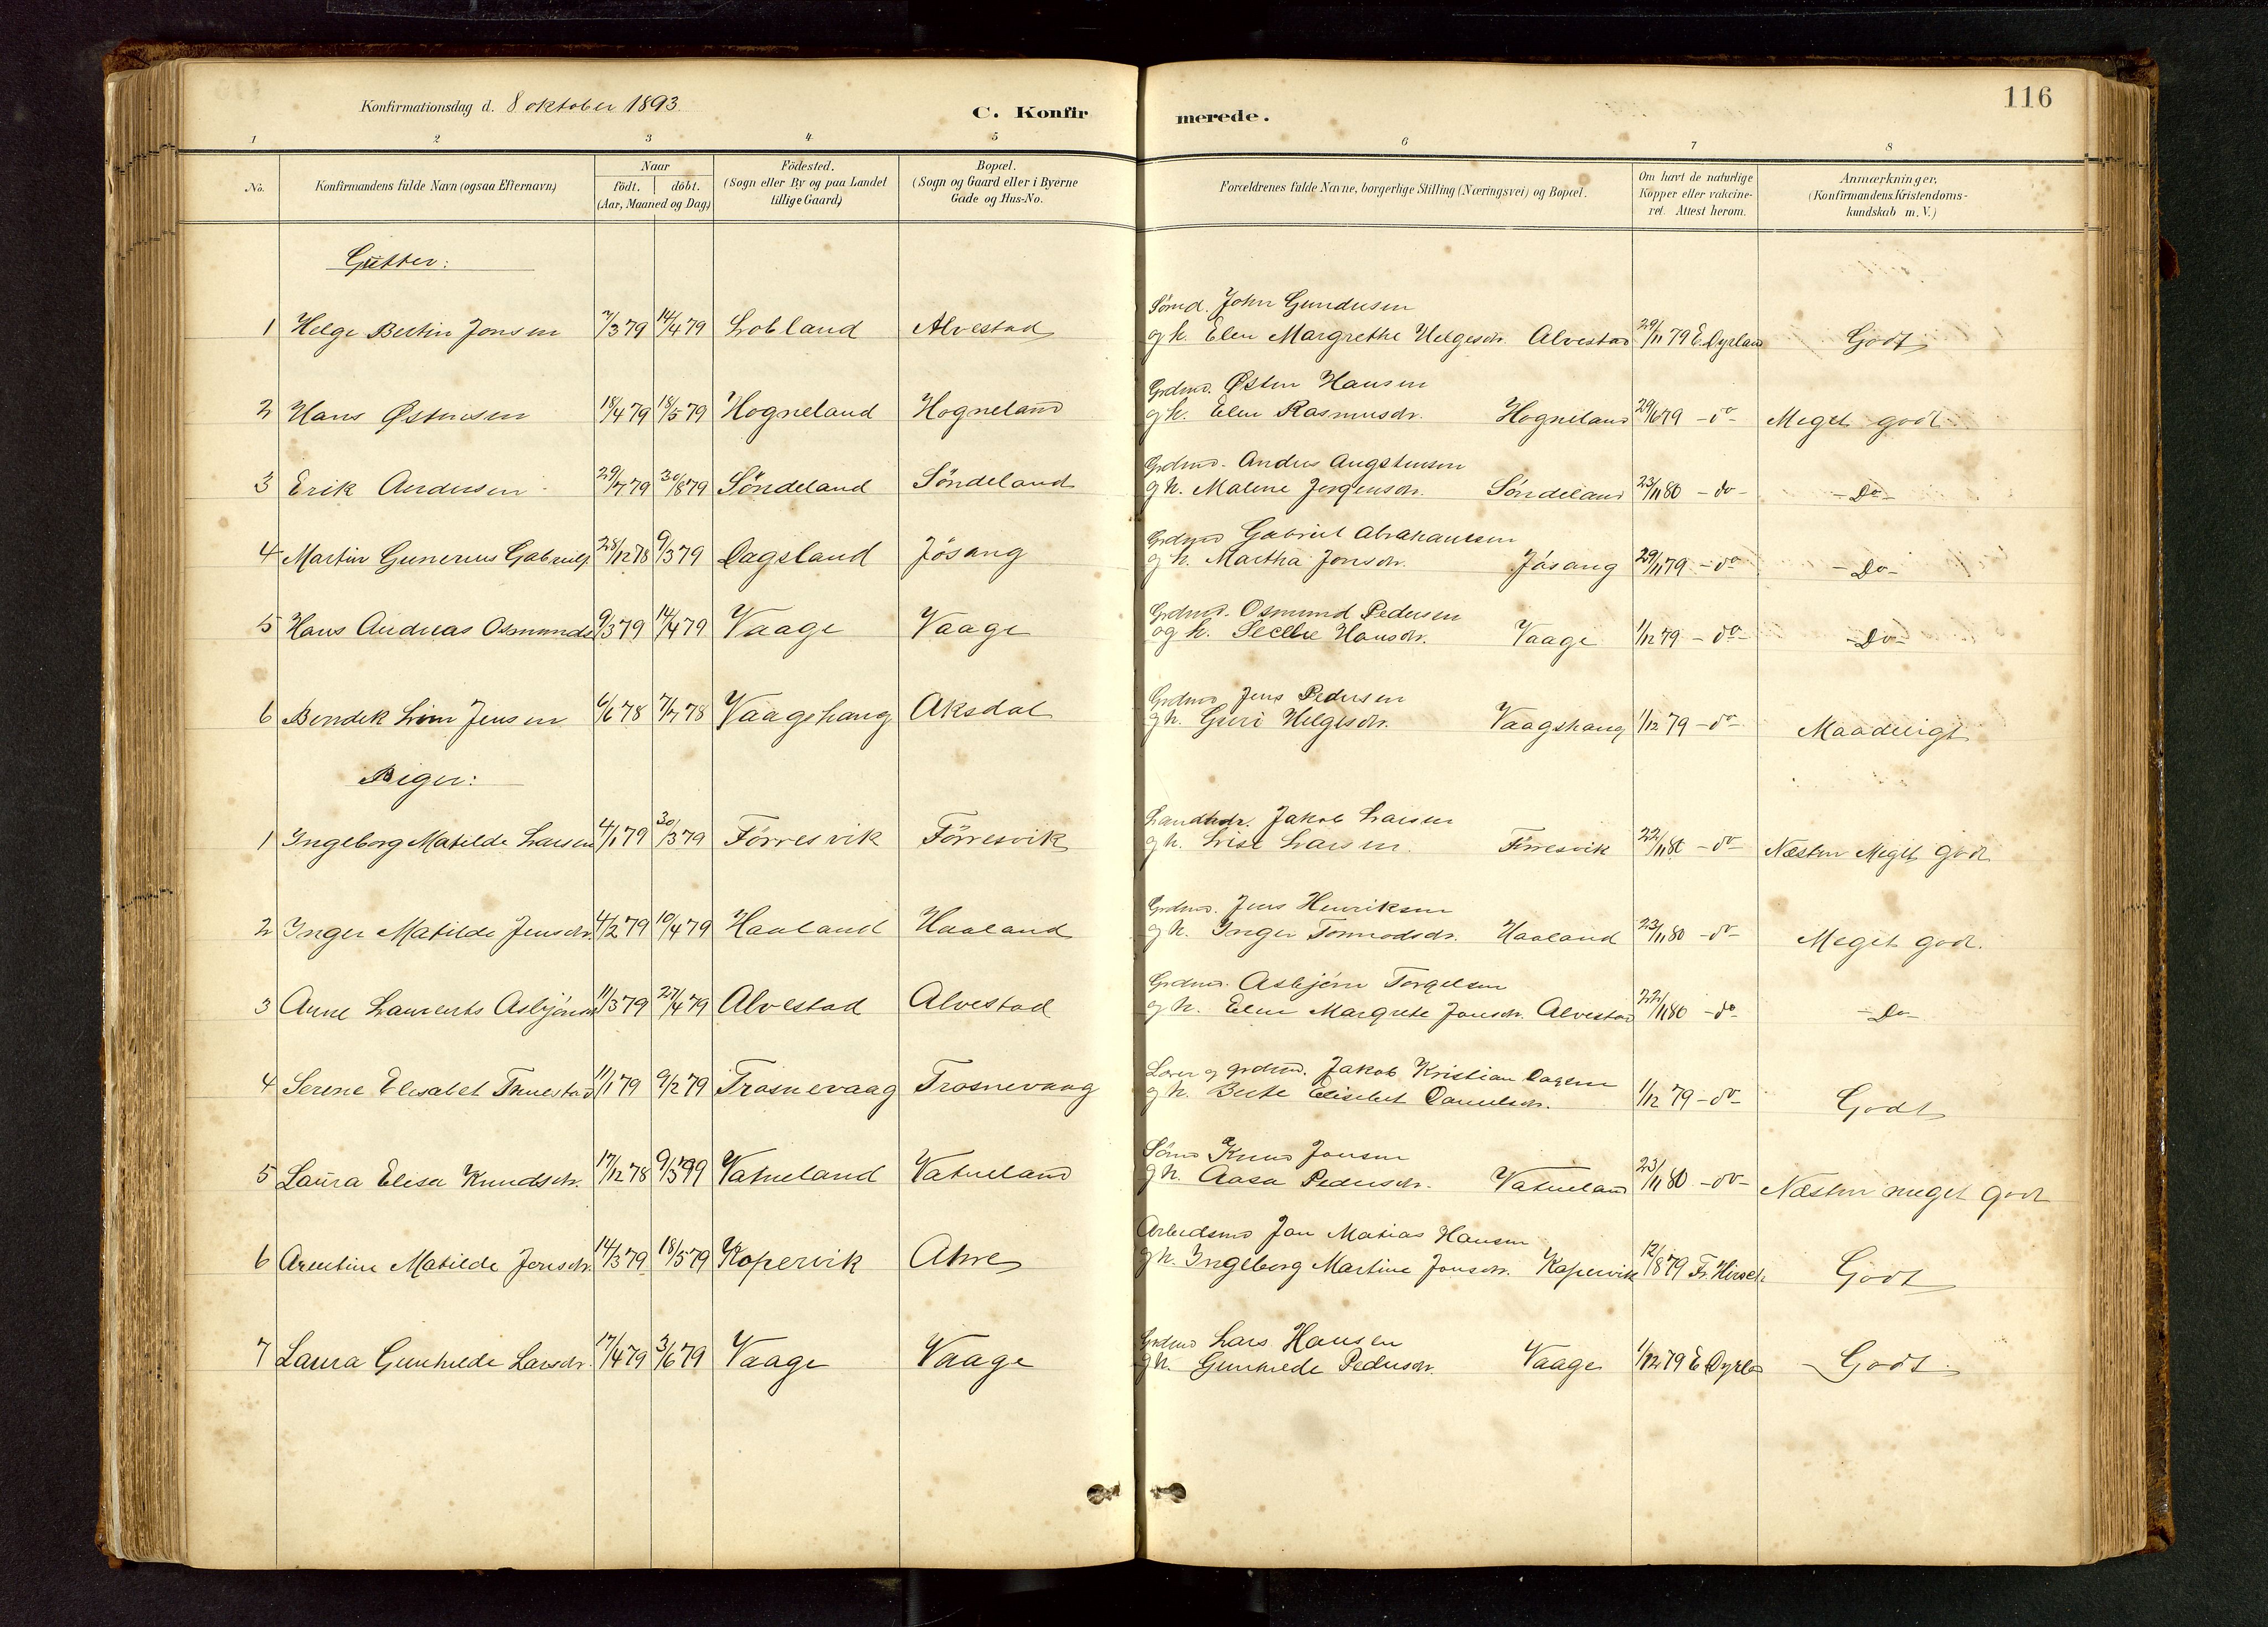 116
Konfirmationsdag d. 8 oktober 1893.
C. Konfirmerede.
1 2 3 4 5 6 7 8
No. Konfirmandens fulde Navn (ogsaa Efternavn) Naar født. døbt. (Aar, Maaned og Dag) Födested. (Sogn eller By og paa Landet tillige Gaard) Bopæl. (Sogn og Gaard eller i Byerne Gade og Hus-No. Forældrenes fulde Navne, borgerlige Stilling (Næringsvei) og Bopæl. Om havt de naturlige Kopper eller vakcineret. Attest herom. Anmærkninger, (Konfirmandens Kristendomskundskab m. V.)
Gutter:
John Gundersen
1 Helge Bertin Jonsen 14/4 79 Lobland Alvestad og h. Elen Margrethe Helgesdr. Alvestad 29/11 79 E. Dyrland Godt
Grdmd. Østen Hansen
2 Hans Østensen 18/4 79 18/5 79 Hogneland Hogneland og h. Elen Rasmusdr. Hogneland 29/6 79 - do - Meget godt
Grdmd. Anders Augstensen
3 Erik Andersen 29/7 79 30/8 79 Söndeland Söndeland og h. Malene Jørgensdr. Söndeland 23/11 80 - do - - Do -
Grdmd Gabriel Abrahamsen
4 Martin Gunerius Gabriels. 28/12 78 9/3 79 Dagsland Jösang og h. Martha Jonsdr. Jösang 29/11 79 - do - Do -
Grdmd. Osmund Pedersen
5 Hans Andreas Osmunds 9/3 79 14/4 79 Vaage Vaage og h. Hansdr. Vaage 1/12 79 - do - - Do -
Grdmd Jens Pedersen
6 Bendik Jensen 6/6 78 7/7 78 Vaagshaug Aksdal og h. Guri Helgesdr. Vaagshaug 1/12 79 - do - Maadeligt
Piger:
Jakob Larsen
1 Ingeborg Matilde Larsen 4/1 79 30/3 79 Förresvik Förresvik og h. Lise Larsen. Förresvik 22/11 80 - do - Næsten Meget godt
Grdmd. Jens Henriksen
2 Inger Matilde Jensdr. 4/2 79 10/4 79 Haaland Haaland og h. Inger Tormodsdr. Haaland 23/11 80 - do - Meget godt.
Grdmd. Asbjørn Torgelsen
3 Anne Laurents Asbjörnsdr 11/3 79 27/4 79 Alvestad Alvestad og h. Elen Margrete Jonsdr. Alvestad 22/11 80 - do - - Do -
og grdmd. Jakob Kristian Dagsen
4 Serene Elisabet 11/1 79 9/2 79 Trosnevaag Trosnevaag og h. Berte Elisebet Danielsdr. 1/12 79 - do - Godt
Knud Jonsen
5 Laura Elisa Knudsdr. 17/12 78 9/3 79 Vatneland Vatneland og h. Aasa Pedersdr. Vatneland 23/11 80 - do - Næsten meget godt
Arbeidsmd Jon Matias Hansen
6 Matilde Jonsdr. 14/3 79 18/5 79 Kopervik og h. Ingeborg Martine Jonsdr. Kopervik 12/8 79 Fr. Hirsch Godt
Grdmd Lars Hansen
7 Laura Gunhilde Larsdr. 17/4 79 3/6 79 Vaage Vaage og h. Gunhilde Pedersdr. Vaage 1/12 79 E Dyrld Godt